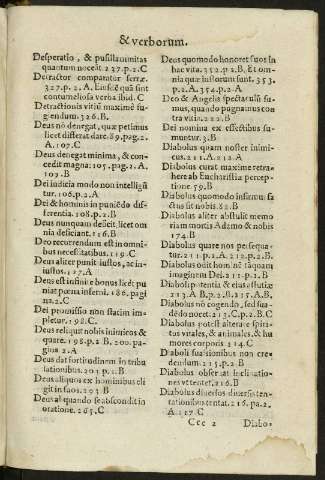 & verborum.
Desperatio, & pusillanimitas
quantum noceat. 237.p.2.C
Detractor comparatur serræ.
327.p.2.A. Eiusdē quā sint
contumeliosa verba ibid. C
Detractionis vitiū maximè fu-
gendum. 326.B
Deus nō denegat, quæ petimus
licet differat dare. 89.pag. 2.
A. 107.C
Deus denegat minima, & con-
cedit magna: 105.pag. 2. A.
103.B
Dei iudicia modo non intelligū
tur. 106.p.2.A
Dei & hominis in puniēdo dif-
ferentia. 108.p.2.B
Deus nunquam deficit, licet om
nia deficiant. 116.B
Deo recorrendum est in omni-
bus necessitatibus. 119.C
Deus aliter punit iustos, ac in-
iustos. 127.A
Deus est infinitè bonus licèt pu
niat pœna inferni. 186. pagi
na. 2.C
Dei promissio non statim im-
pletur. 198. C.
Deus reliquit nobis inimicos &
quare. 198.p.2 B. 200. pa-
gina. 2.A
Deus dat fortitudinem in tribu
lationibus. 201 p.1. B
Deus aliquos ex hominibus eli-
git in suos. 293 B
Deus aliquando se abscondit in
oratione. 265.C
Deus quomodo honoret suos in
hac vita. 352.p.2.B. Et om-
nia quæ iustorum sunt. 353.
p.2.A. 354.p.2.A
Deo & Angelis spectaculū su-
mus, quando pugnamus con
tra vitia. 222.B
Dei nomina ex effectibus su-
muntur. 3.B
Diabolus quam noster inimi-
cus. 211.A. 212.A
Diabolus curat maximè retra-
here ab Eucharistiæ percep-
tione. 59.B
Diabolus quomodo infirmus fa
ctus sit nobis. 82.B
Diabolus aliter abstulit memo
riam mortis Adamo & nobis
174.B
Diabolus quare nos persequa-
tur. 211.p.1.A. 212.p.2.B.
Diabolus odit homīnē tāquam
imaginem Dei. 211.p.1.B
Diaboli potentia & eius astutiæ
213.A B.p.2.B. 215.A B.
Diabolus nō cogendo, sed sua-
dēdo nocet. 213.C.p.2.B.C
Diabolus potest alterare spiri-
tus vitales, & animales, & hu
mores corporis 214.C
Diaboli suasionibus non cre-
dendum. 215.p.2 B
Diabolus obseruat inclinatio-
nes vt tentet. 216.B
Diabolus diuersos diuersis ten-
tationibus tentat. 216. pa. 2.
A. 217.C
Ccc 2 Diabo-